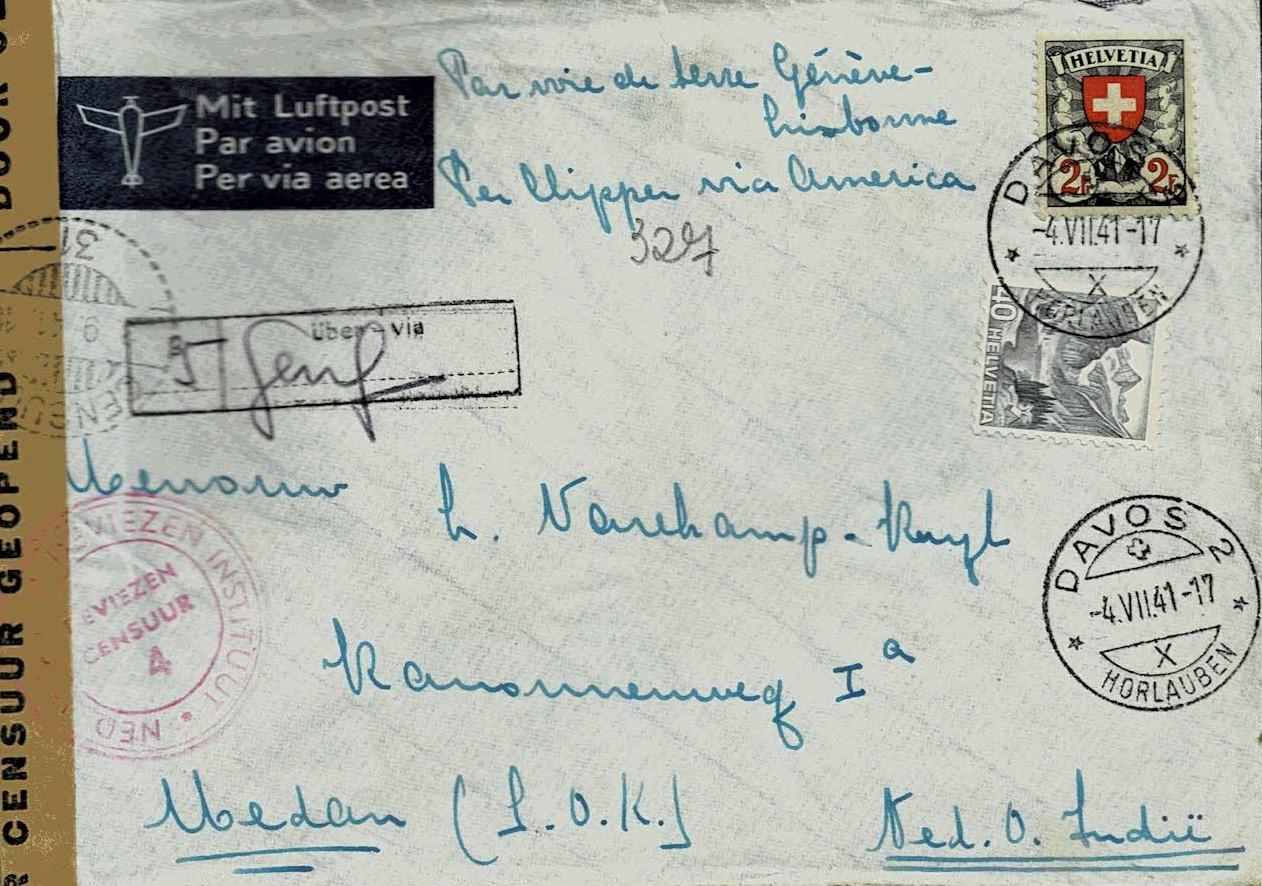 Mit Luftpost
Par avion
Per via aerea
Par voie de terre Génève-
Lisbonne
Per Clipper via America
327
HELVETIA
2F 2F
DAVOS
-4.VII.41-17
X
HORLAUBEN
40 HELVETIA
31
über - via
Genf
Mevrouw L. Varekamp-Kuyl
Kanonnenweg Iª
Medan (S.O.K.) Ned. O. Indië
DEVIEZEN INSTITUUT * NED
DEVIEZEN
CENSUUR
4
DAVOS 2
-4.VII.41-17
X
HORLAUBEN
CENSUUR GEOPEND DOOR